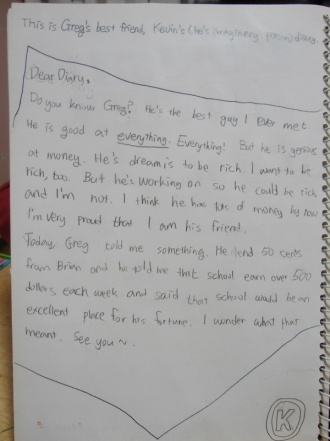 This is Greg's best friend, Kevin's (he's imaginary person) diary.
Dear Diary,
Do you know Greg? He's the best guy I ever met
He is good at everything. Everything! But he is genious
at money. He's dream is to be rich. I want to be
rich, too. But he's working on so he could be rich
and I'm not. I think he has lots of money by now
I'm very proud that I am his friend.
Today, Greg told me something. He lend 50 cents
from Brian and he told me that school earn over 500
dollars each week and said that school would be an
excellent place for his fortune. I wonder what that
meant. See you ~.
K